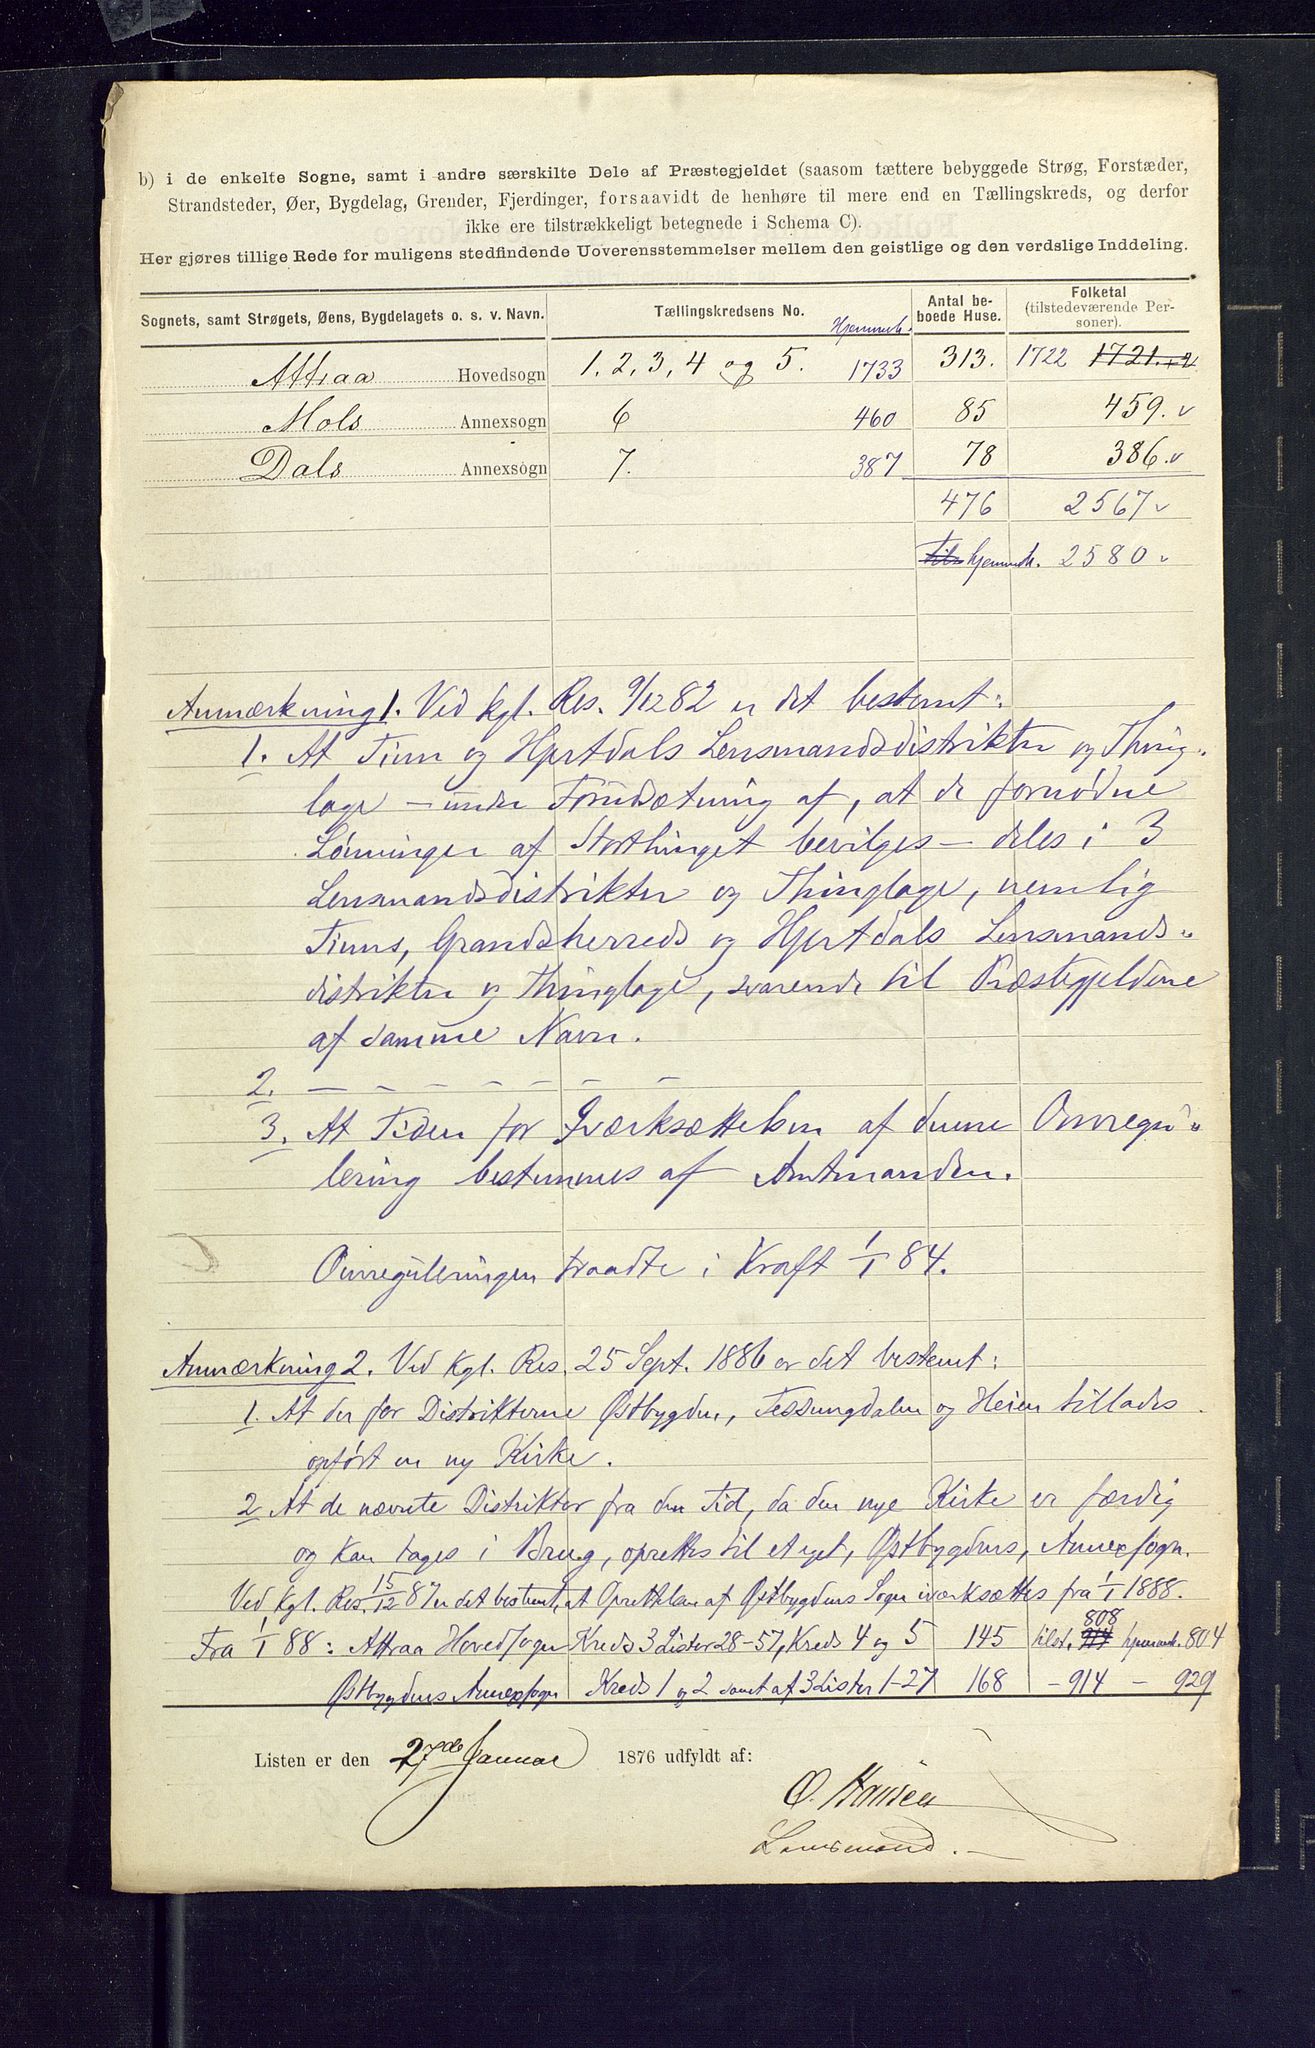 b) i de enkelte Sogne, samt i andre særskilte Dele af Præstegjeldet (saasom tættere bebyggede Strøg, Forstæder,
Strandsteder, Øer, Bygdelag, Grender, Fjerdinger, forsaavidt de henhøre til mere end en Tællingskreds, og derfor
ikke ere tilstrækkeligt betegnede i Schema C).
Her gjøres tillige Rede for muligens stedfindende Uoverensstemmelser mellem den geistlige og den verdslige Inddeling.
Sognets, samt Strøgets, Øens, Bygdelagets o. s. v. Navn. Tællingskredsens No. Hjemmeh. Antal beboede Huse. Folketal (tilstedeværende Personer).
Attraa Hovedsogn 1, 2, 3, 4 og 5. 1733 313. 1722 1721.
Mols Annexsogn 6 460 85 459. v
Dals Annexsogn 7. 387 78 386. v
476 2567 v
Tils hjemmeh. 2580 v
Anmærkning 1. Ved kgl. Res. 9/12 82 er det bestemt:
1. At Tinn og Hjertdals Lensmandsdistrikter og Thing-
lage – under Forudsætning af, at de fornødne
Lønninger af Storthinget bevilges – deles i 3
Lensmandsdistrikter og Thinglage, nemlig
Tinns, Gransherreds og Hjertdals Lensmands-
distrikter og Thinglage, svarende til Præstegjeldene
af samme Navn.
2. – – – – – – –
3. At Tiden for Iværksættelsen af denne Omregu-
lering bestemmes af Amtmanden.
Omreguleringen traadte i Kraft 1/1 84.
Anmærkning 2. Ved Kgl. Res. 25 Sept. 1886 er det bestemt:
1. At der for Distrikterne Østbygden, Tessungdalen og Heien tillades
opført en ny Kirke.
2 At de nævnte Distrikter fra den Tid, da den nye Kirke er færdig
og kan tages i Brug, oprettes til et eget, Østbygdens, Annexsogn.
Ved Kgl. Res. 15/12 87 er det bestemt, at Oprettelsen af Østbygdens Sogn iværksættes fra 1/1 1888.
Fra 1/1 88: Attraa Hovedsogn Kreds 3 Lister 28-57, Kreds 4 og 5 145 tilst. 914 808 hjemmeh. 804
Østbygdens Annexsogn Kreds 1 og 2 samt af 3 Lister 1-27 168 – 914 – 929
Listen er den 27de Januar 1876 udfyldt af:
O. Hansen
Lensmand.